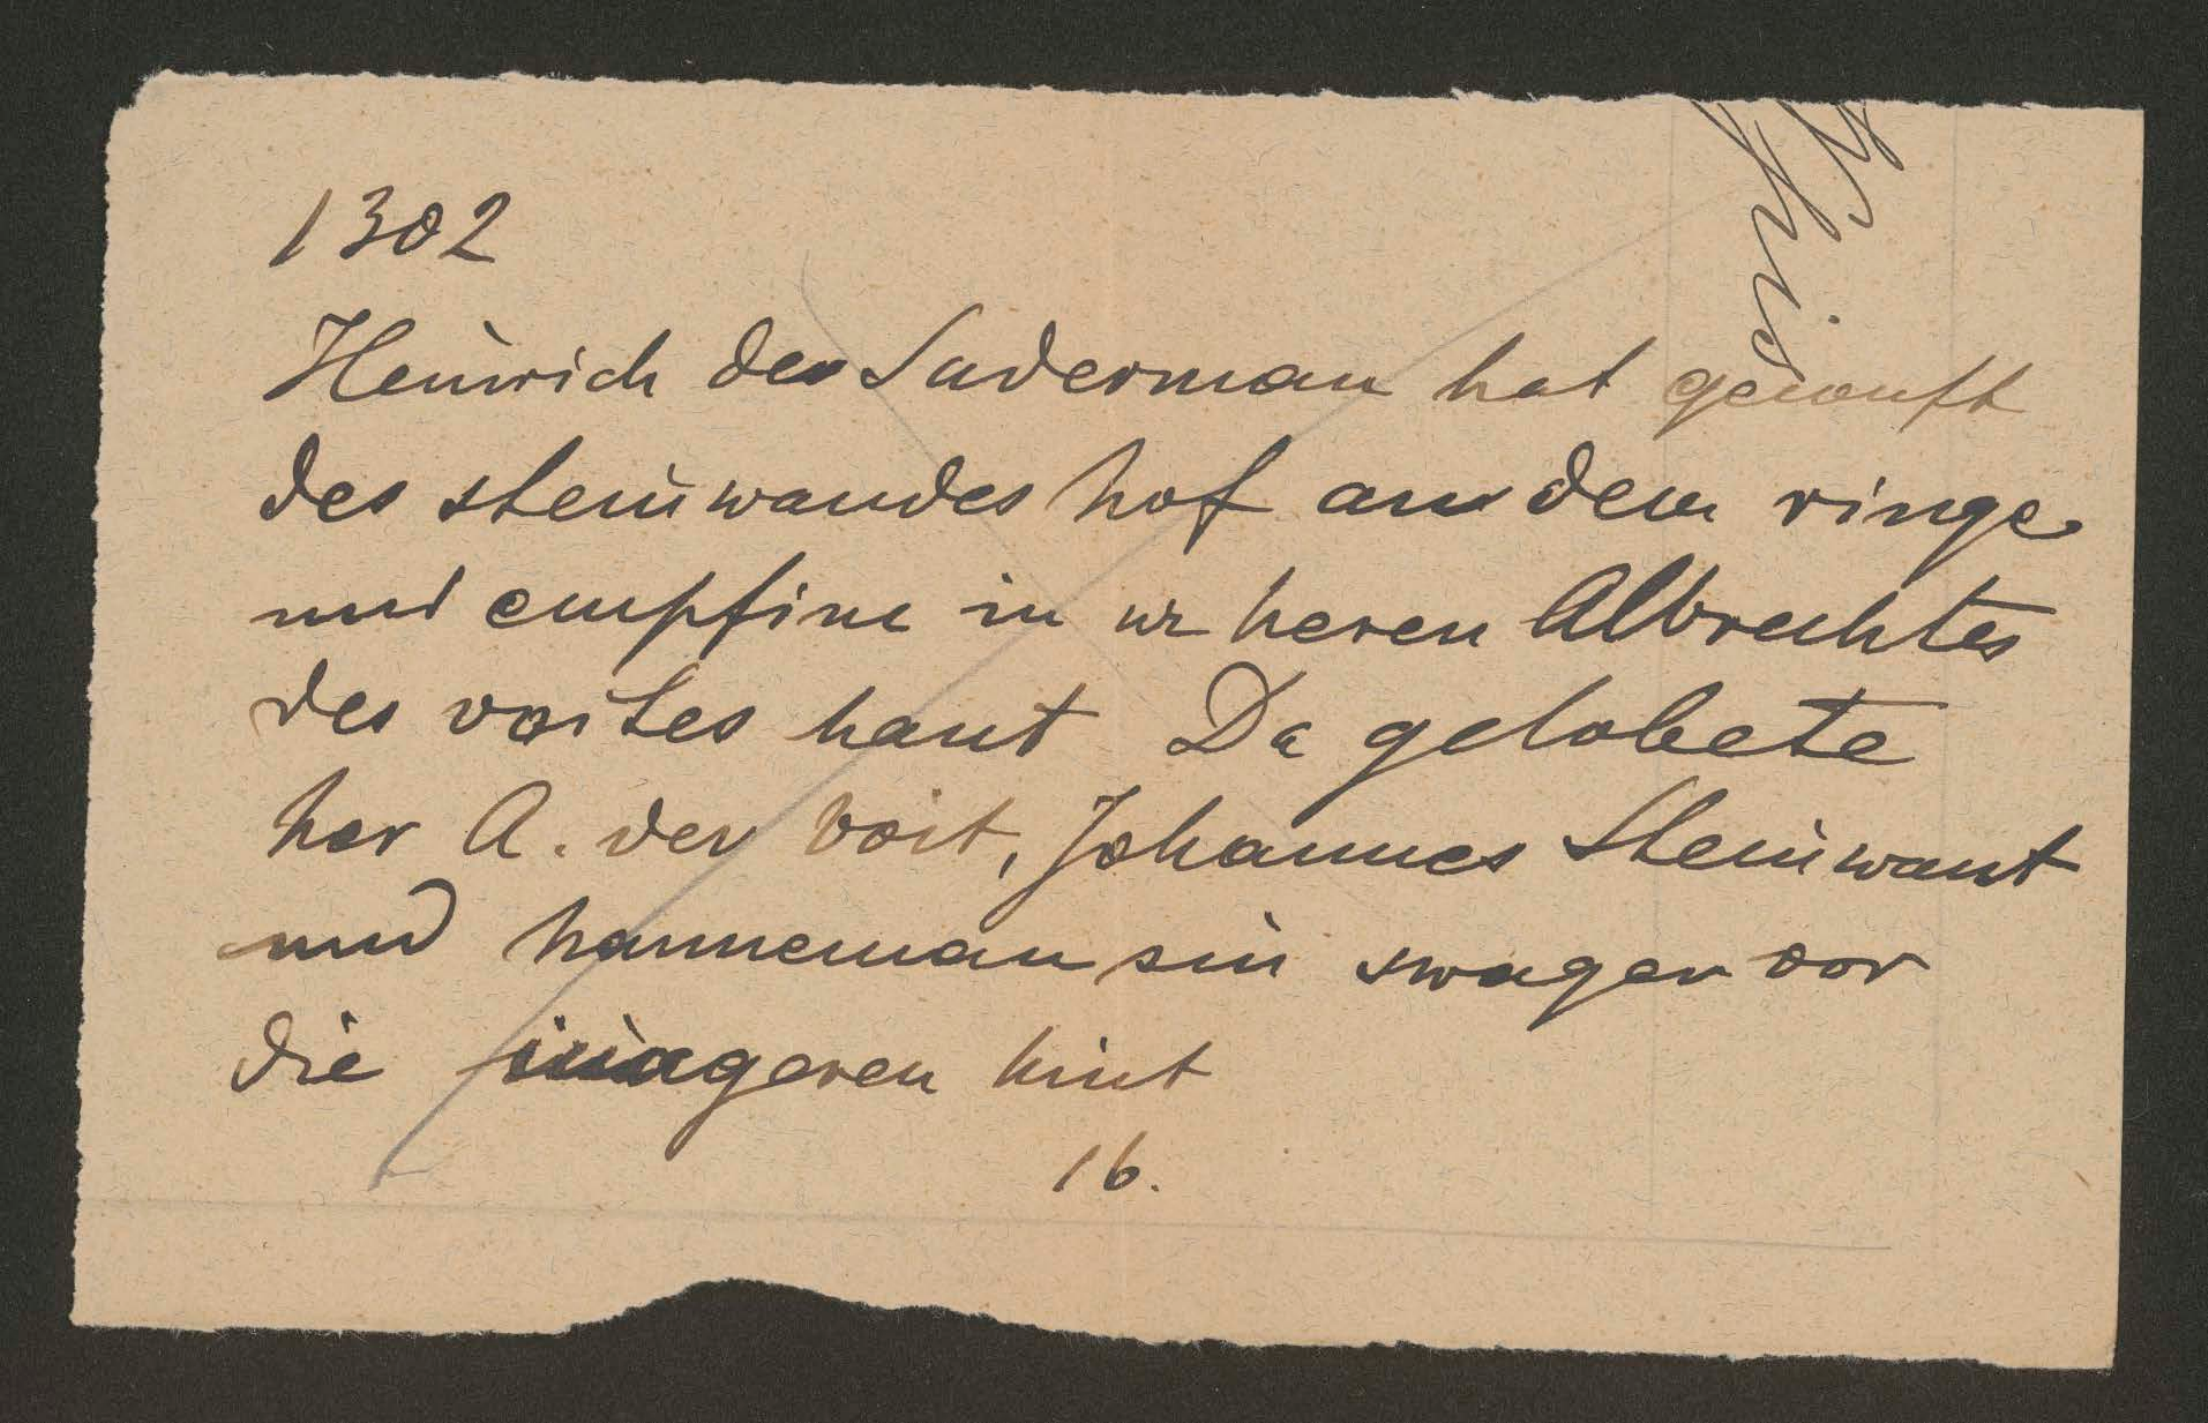 1302
Heinrich der Suderman hat gecouft
des steinwandes hof an dem ringe
und empfinc in uz heren Albrechtes
des voites hant Da gelobete
her A. der voit, Johannes Steinwant
und hanneman sin swager vor
die jungeren kint
16.